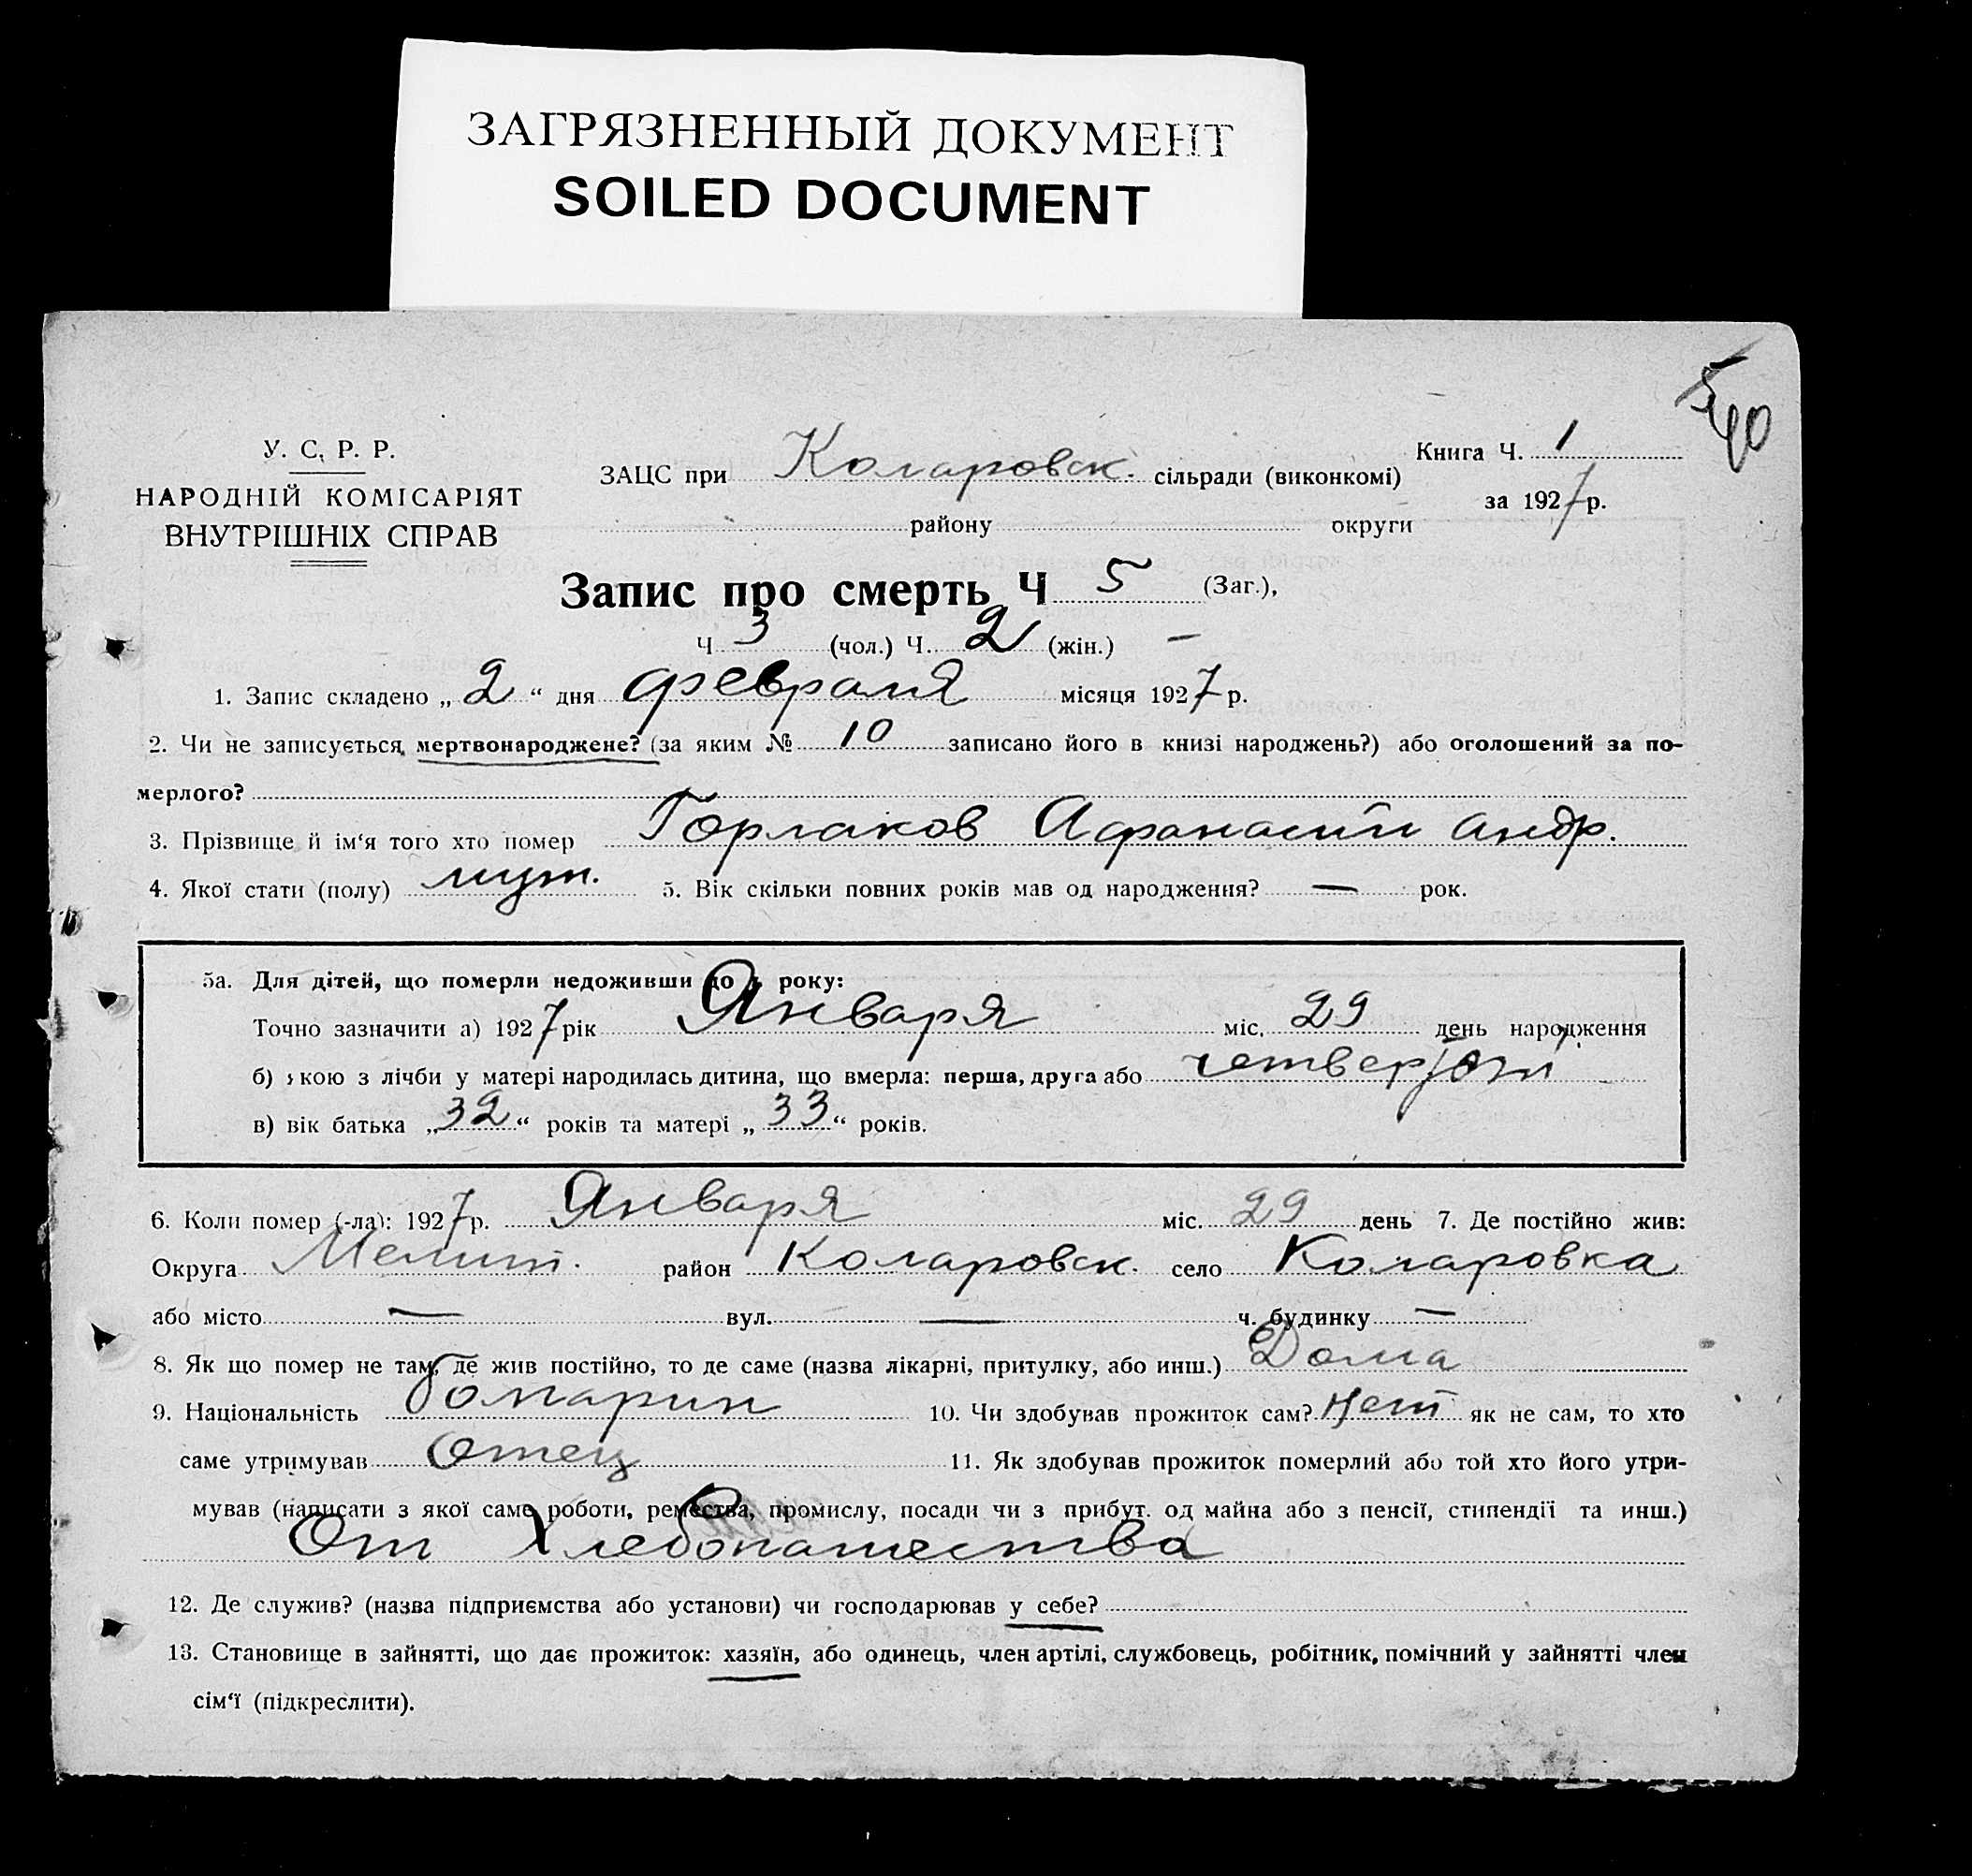 ЗАГРЯЗНЕННЫЙ ДОКУМЕНТ
SOILED DOCUMENT
5
40
У. С. Р. Р.
НАРОДНІЙ КОМІСАРІЯТ
ВНУТРІШНІХ СПРАВ
ЗАЦС при Коларовск. сільради (виконкомі)
району округи
Книга Ч. 1
за 1927 р.
Запис про смерть Ч 5 (Заг.),
Ч 3 (чол.) Ч. 2 (жін.) —
1. Запис складено „ 2 “ дня февраля місяця 1927 р.
2. Чи не записується, мертвонароджене? (за яким № 10 записано його в книзі народжень?) або оголошений за по-
мерлого?
3. Прізвище й ім‘я того хто помер Горлаков Афанасий Андр.
4. Якої стати (полу) муж. 5. Вік скільки повних років мав од народження? — рок.
5а. Для дітей, що померли недоживши до року:
Точно зазначити а) 1927 рік Января міс. 29 день народження
б) якою з лічби у матері народилась дитина, що вмерла: перша, друга або
в) вік батька „ 32 “ років та матері „ 33 “ років.
6. Коли помер (-ла): 1927 р. Января міс. 29 день 7. Де постійно жив:
Округа Мелит. район Коларовск. село Коларовка
або місто — вул. — ч. будинку —
8. Як що помер не там, де жив постійно, то де саме (назва лікарні, притулку, або инш.) Дома
9. Національність болгарин 10. Чи здобував прожиток сам? Нет як не сам, то хто
саме утримував Отец 11. Як здобував прожиток померлий або той хто його утри-
мував (написати з якої саме роботи, ремества, промислу, посади чи з прибут. од майна або з пенсії, стипендії та инш.)
От Хлебопашества
12. Де служив? (назва підприємства або установи) чи господарював у себе?
13. Становище в зайнятті, що дає прожиток: хазяїн, або одинець, член артілі, службовець, робітник, помічний у зайнятті член
сім‘ї (підкреслити).